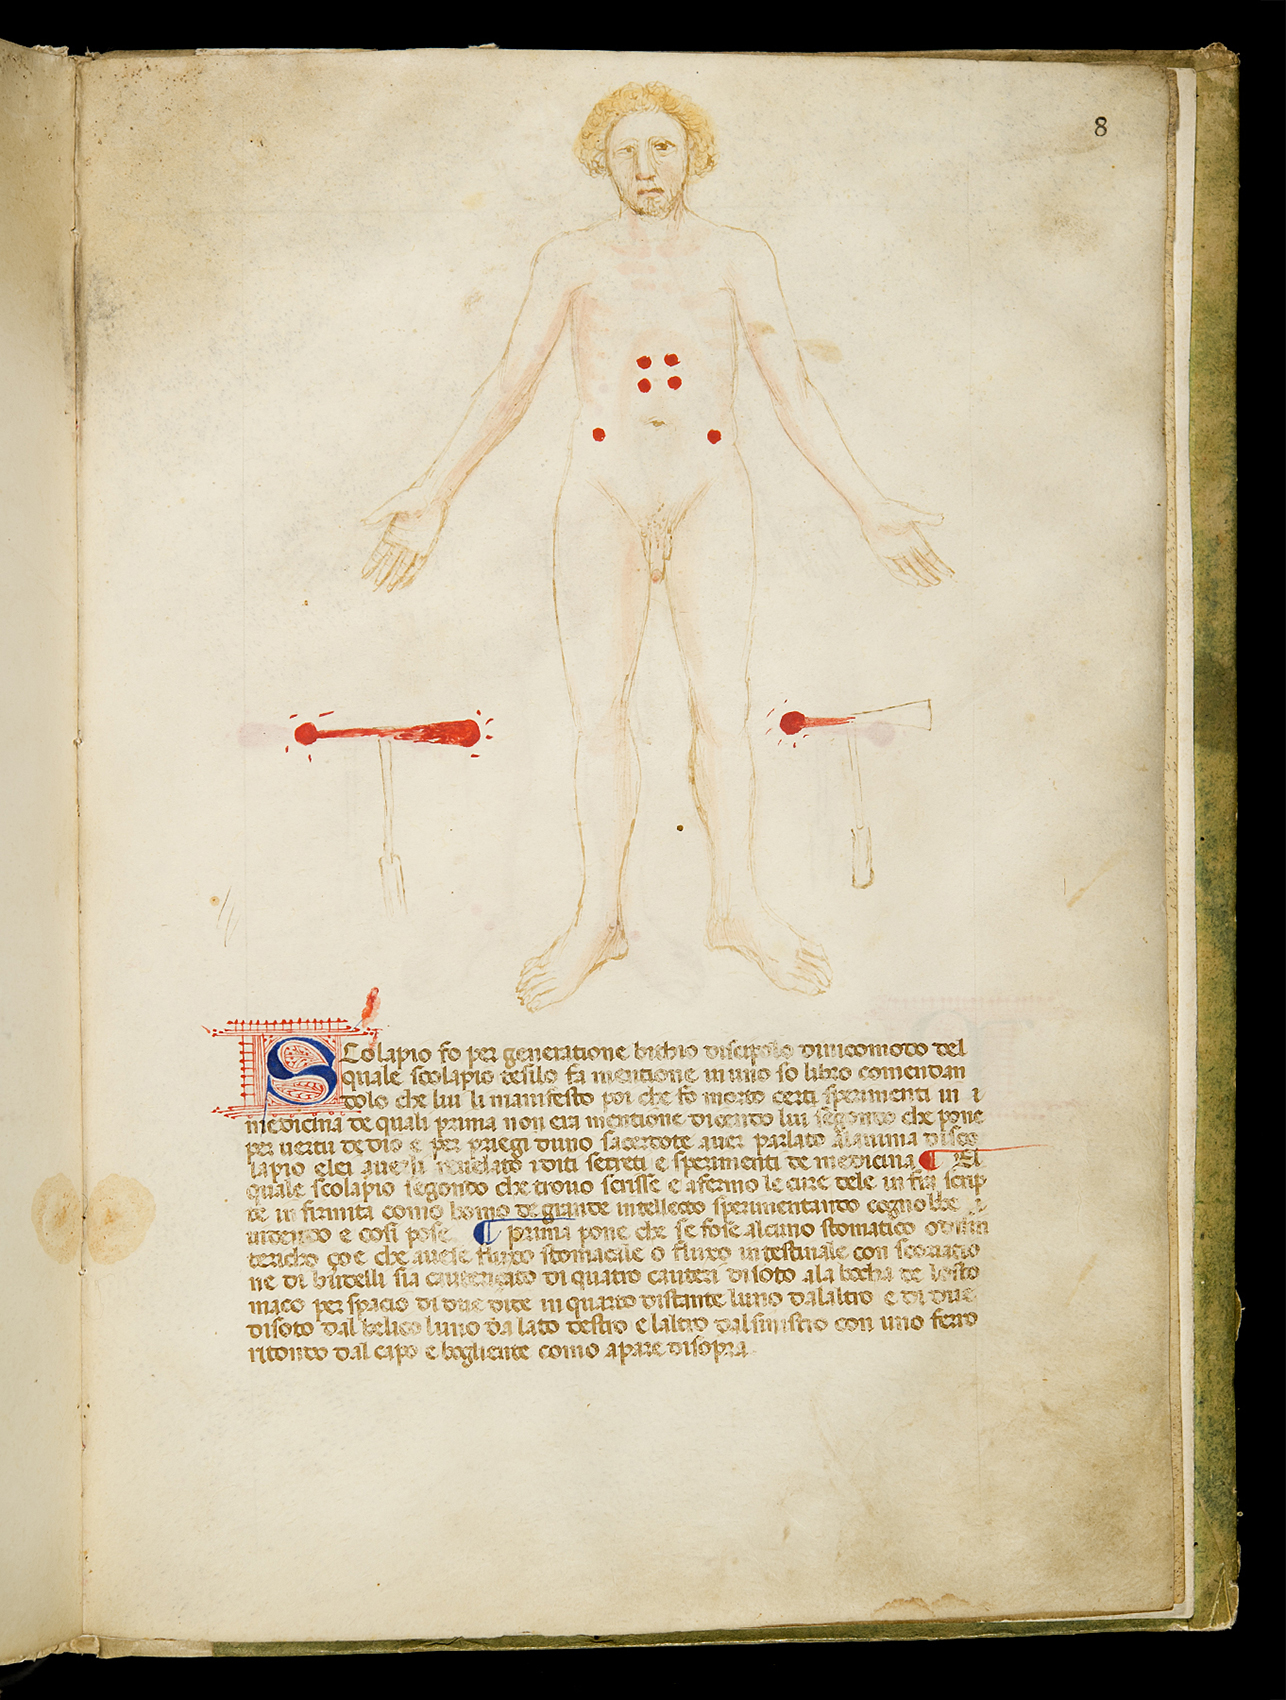 8
Scolapio fo per generatione bichio discipolo dinicomoto del
quale scolapio tesilo fa mentione in uno so libro comendan
dolo che lui li manifesto poi che fo morto certi sperimenti in
medicina de quali prima non era mentione dicendo lui segondo che pone
per vertu de dio e per priegi duno sacerdote aver parlato alanima disco
lapio e lei averli revelato i diti secreti e sperimenti de medicina ¶ El
quale scolapio segondo che trovo scrisse e afermo le cure dele in fra scrip
te in firmita como homo de grande intellecto sperimentando cognobbe
vivendo e cosi pose ¶ prima pone che se fose alcuno stomatico o
tericho çoe che avese fluxo stomacale o fluxo intestinale con scoriatio
ne di budelli sia cauterizato di quatro cauteri di soto ala bocha de losto
maco per spacio di due dite in quatro distante luno dalaltro e di due
disoto dal belico luno da lato destro e laltro dal sinistro con uno ferro
ritondo dal capo e bogliente como apare disopra